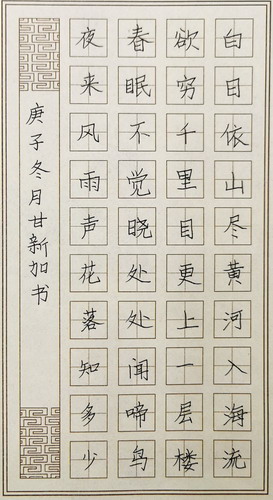 白日依山尽黄河入海流
欲穷千里目更上一层楼
春眠不觉晓处处闻啼鸟
夜来风雨声花落知多少
庚子冬月甘新加书